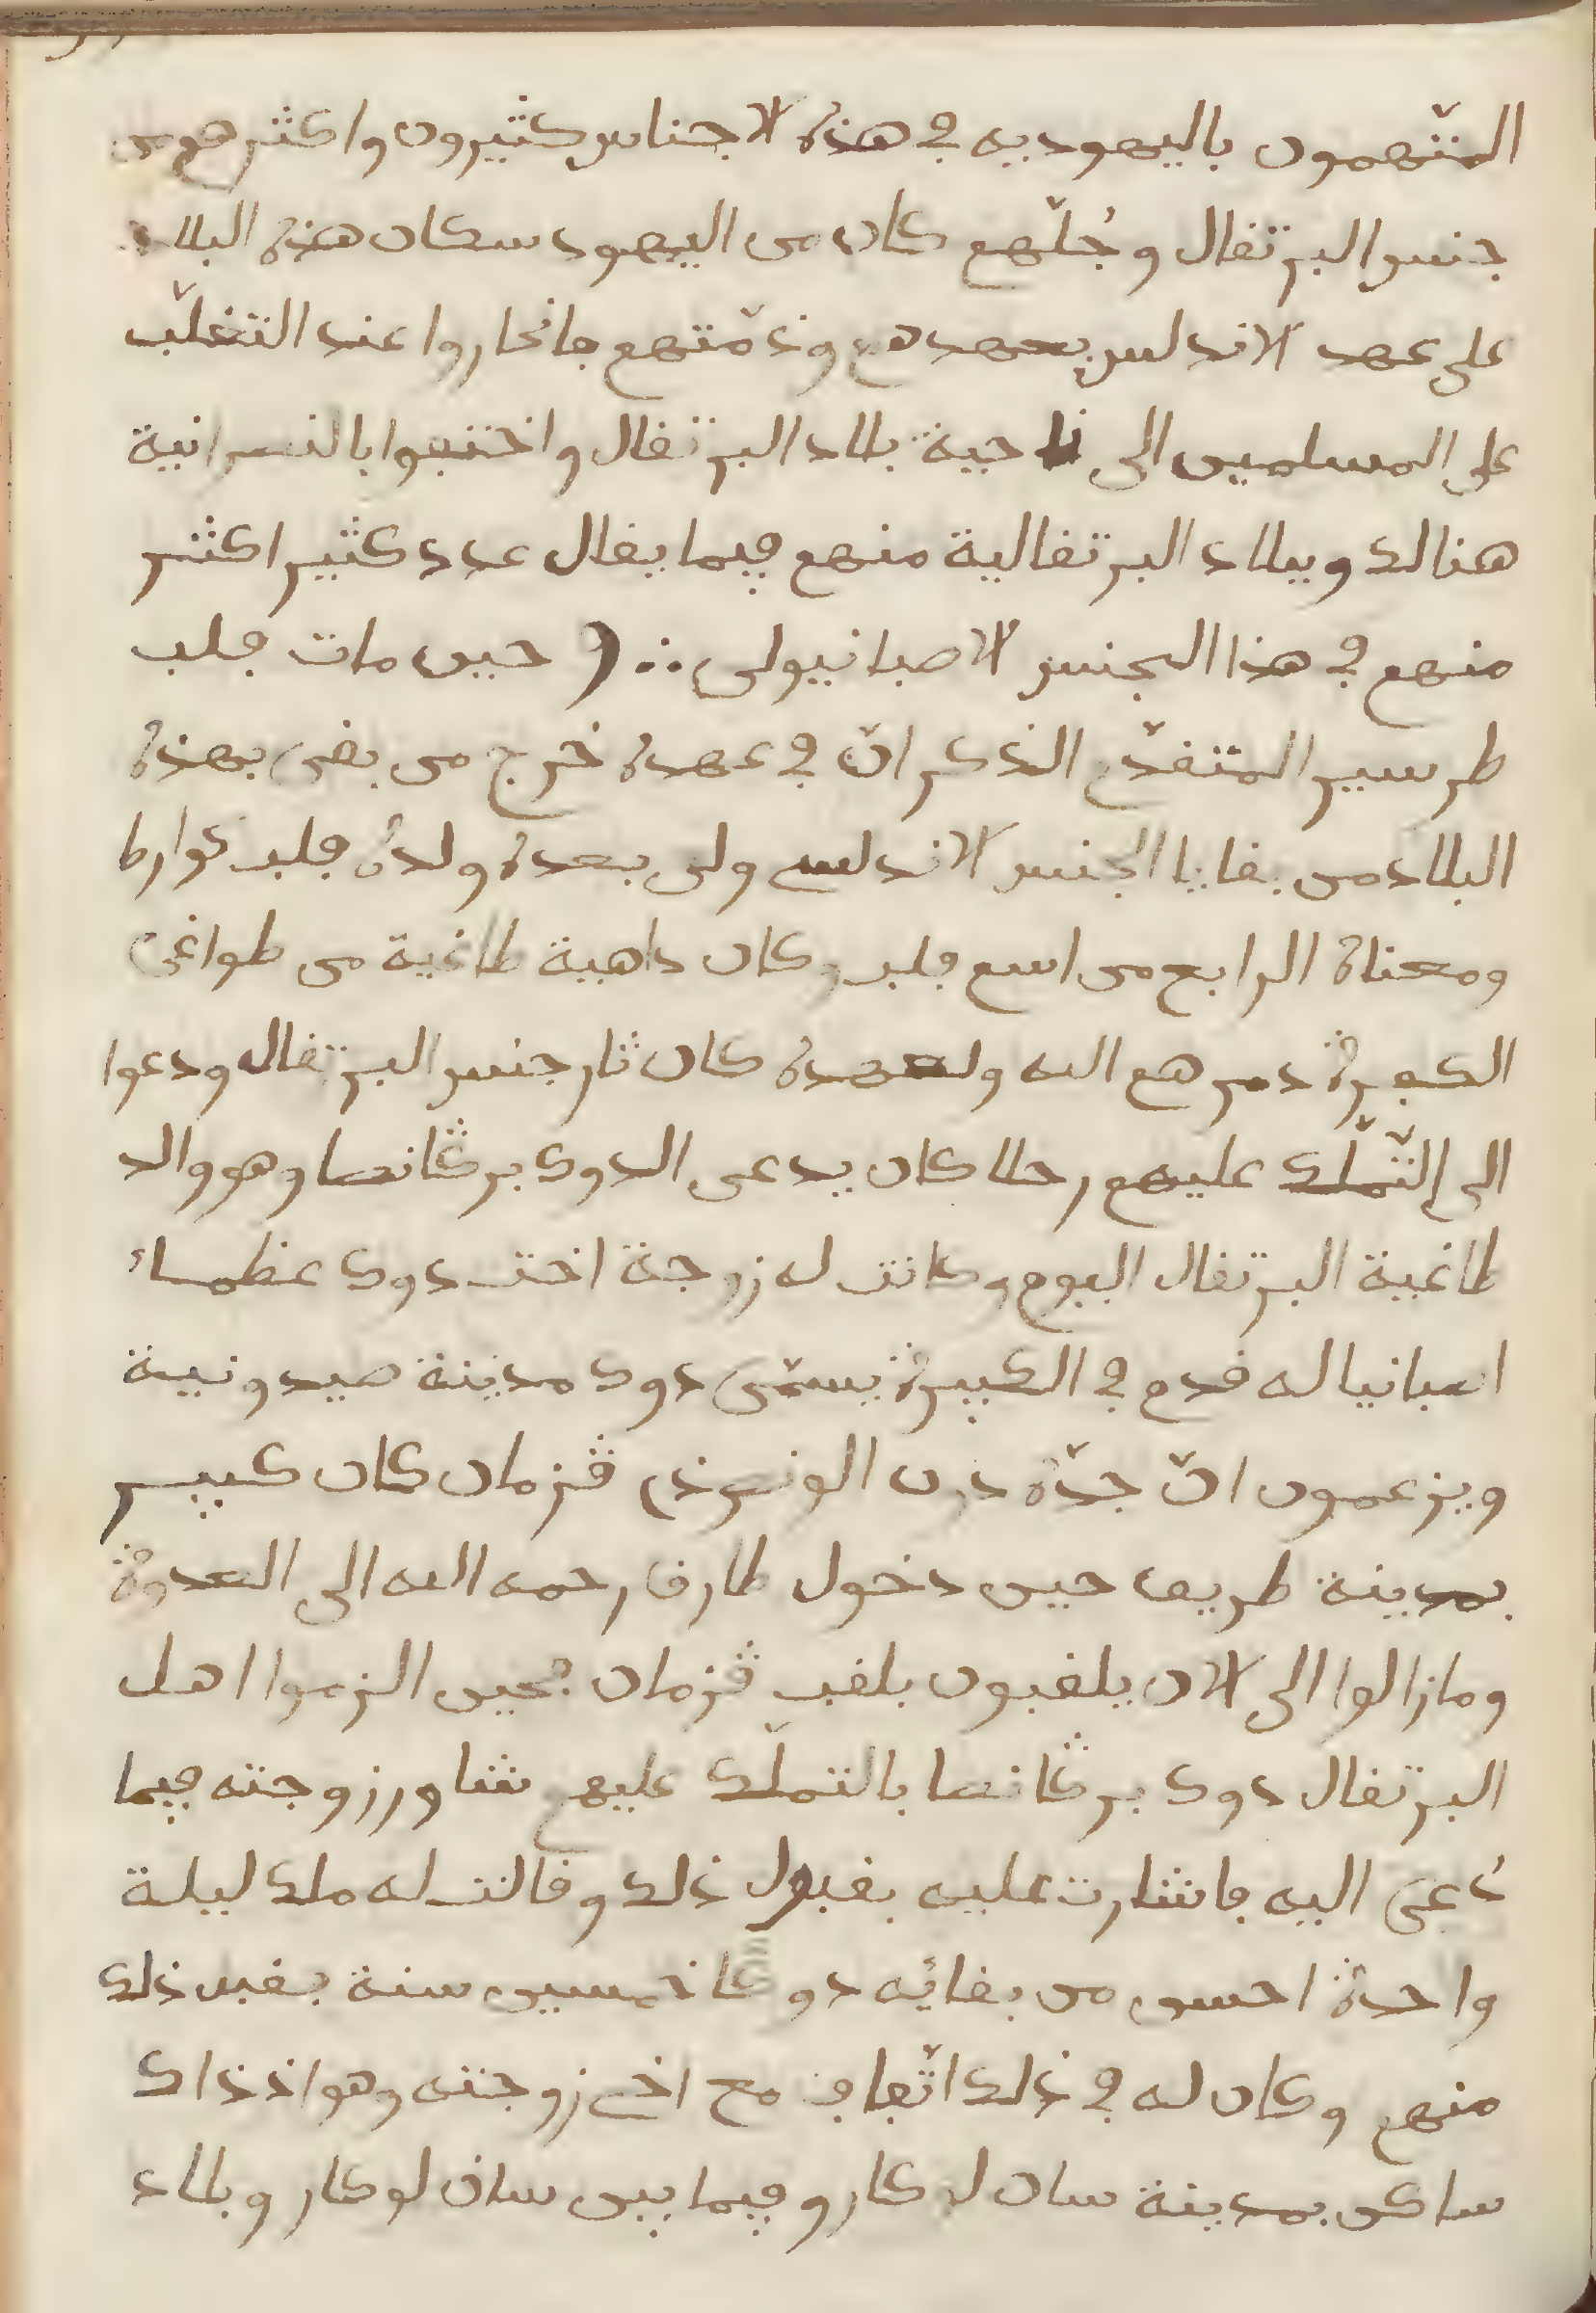 المتّهمون باليهوديه في هذه الاجناس كثيرون واكثرهم من
جنس البرتقال وجُلّهم كان من اليهود سكان هذه البلاد
على عهد الاندلس بعهدهم وذمّتهم فانحازوا عند التغلّب
على المسلمين الى ناحية بلاد البرتقال واختفوا بالنصرانية
هنالك وببلاد البرتقالية منهم فيما يقال عدد كثير اكثر
منهم في هذا الجنس الاصبانيولي ∴ حين مات فلب
طرسير المتقدّم الذكر انّ في عهده خرج من بقي بهذه
البلاد من بقايا الجنس الاندلسي ولي بعده ولده فلب كوارط
ومعناه الرابع من اسم فلب وكان داهية طاغية من طواغي
الكفرة دمرهم الله ولعهده كان ثار جنس البرتقال ودعوا
الى التّملّك عليهم رجلا كان يدعى الدوك برڭانصا وهو والد
طاغية البرتقال اليوم وكانت له زوجة اخت دوك عظماء
اصبانيا له قدم في الكبيرة يسمّى دوك مدينة صيدونية
ويزعمون انّ جدّه دون الونصو ذي ڤزمان كان كبير
بمدينة طريف حين دخول طارق رحمه الله الى العدوة
ومازالوا الى الان يلقبون بلقب ڤزمان فحين الزموا اهل
البرتقال دوك برڭانصا بالتملّك عليهم شاور زوجته فيما
دُعي اليه فاشارت عليه بقبول ذلك وقالت له ملك ليلة
واحدة احسن من بقائه دوكا خمسين سنة بقبل ذلك
منهم وكان له في ذلك اتّفاق مع اخي زوجته وهو اذ ذاك
ساكن بمدينة سان لوكار وفيما بين سان لوكار وبلاد